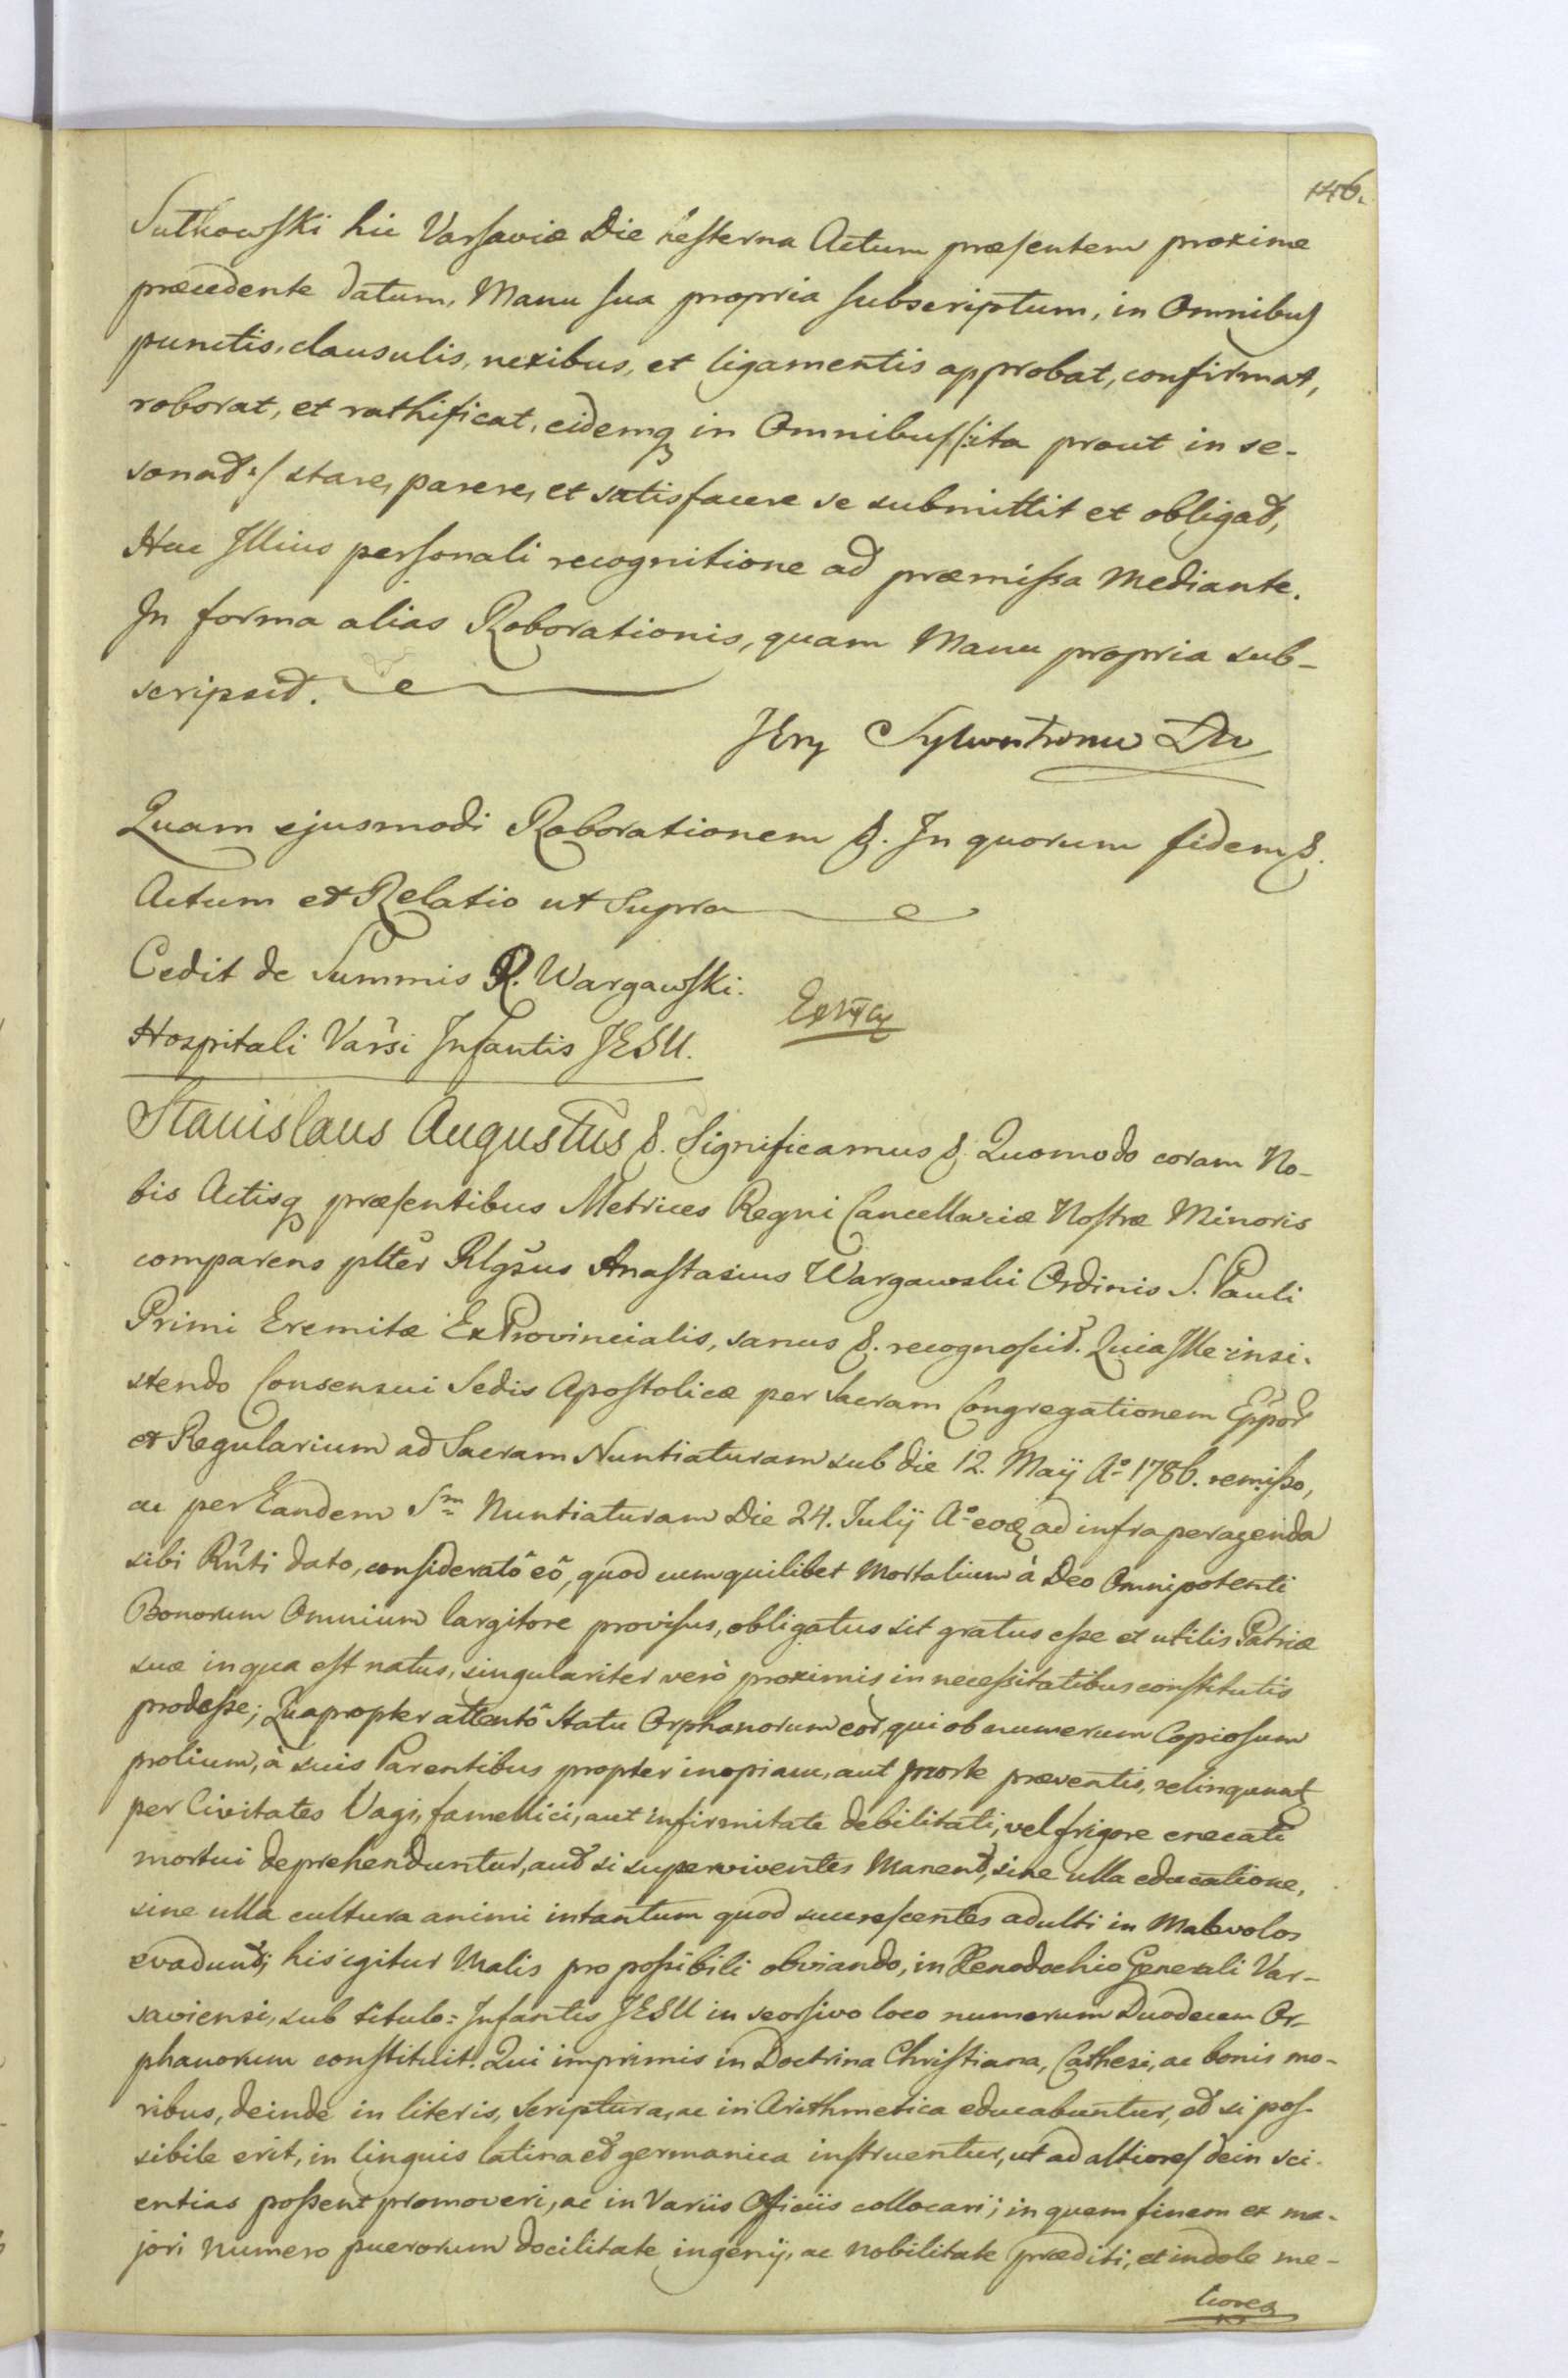 146.
Sutkowski hic Varsaviæ Die hesterna Actum præsentem proxime
præcedente datum, Manu sua propria subscriptum, in Omnibus
punctis, clausulis, nexibus, et ligamentis approbat, confirmat,
roborat, et rathificat, eidemq in Omnibus /:ita prout in se-
sonat:/ stare, parere, et satisfacere se submittit et obligat,
Hac Illius personali recognitione ad præmissa mediante.
In forma alias Roborationis, quam Manu propria sub-
scripsit.
Quam ejusmodi Roborationem &. In quorum fidem &.
Actum et Relatio ut Supra
Cedit de Summis R. Wargawski.
Hospitali Varsi Infantis JESU.
Stanislaus Augustus &. Significamus &. Quomodo coram No-
bis Actisq præsentibus Metrices Regni Cancellariæ Nostræ Minoris
comparens plter Rlgsus Anastasius Wargawski Ordinis S. Pauli
Primi Eremitæ ExProvincialis, sanus &. recognoscit. Quia Ille insi-
stendo Consensui Sedis Apostolicæ per Sacram Congregationem Eppor
et Regularium ad Sacram Nuntiaturam sub die 12. Maÿ Aº 1786. remisso,
ac per Eandem Sm Nuntiaturam Die 24. Julÿ Aº eoq ad infra peragenda
sibi Rnti dato, consideratô eô, quod cum quilibet Mortalium à Deo Omnipotenti
Bonorum Omnium largitore provisus, obligatus sit gratus esse et utilis Patriæ
suæ in qua est natus, singulariter verò proximis in necessitatibus constitutis
prodesse; Quapropter attentô Statu Orphanorum eor, qui ob numerum Copiosum
prolium, à suis Parentibus propter inopiam, aut morte præventis, relinquunt
per Civitates Vagi, famellici, aut infirmitate debilitati, vel frigore enecati
mortui deprehenduntur, aut si superviventes Manent, sine ulla educatione,
sine ulla cultura animi intantum quod succrescentes adulti in Malevolos
evadunt; his igitur Malis pro possibili obviando, in Xenodochio Generali Var-
saviensi, sub titulo: Infantis JESU in seorsivo loco numerum Duodecem Or-
phanorum constituit. Qui imprimis in Doctrina Christiana, Cathesi, ac bonis mo-
ribus, deinde in literis, Scriptura, ac in Arithmetica educabuntur, et si pos-
sibile erit, in linguis latina et germanica instruentur, ut ad altiores dein sci-
entias possent promoveri, ac in Variis Officiis collocari; in quem finem ex ma-
jori numero puerorum docilitate ingenÿ, ac nobilitate præditi, et indole me-
liores